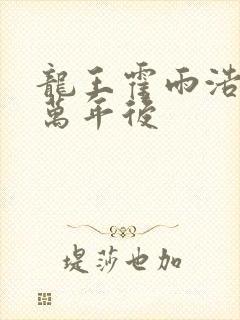 龍王霍雨浩
萬年後
堤莎也加